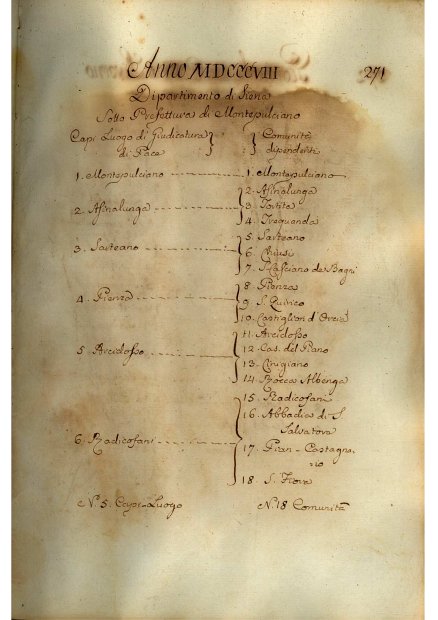 Anno MDCCCVIII 271
Dipartimento di Siena
Sotto Prefettura di Montepulciano
Capi Luogo di Giudicatura di Pace } { Comunità dipendenti
1. Montepulciano 1. Montepulciano
2. Asinalunga { 2. Asinalunga
3. Torrita
4. Trequanda
3. Sarteano { 5. Sarteano
6. Chiusi
7. S. Casciano de Bagni
4. Pienza { 8. Pienza
9. S. Quirico
10. Castiglion d'Orcia
5. Arcidosso { 11. Arcidosso
12. Cas. del Piano
13. Cinigiano
14. Rocca Albenga
6. Radicofani { 15. Radicofani
16. Abbadia di S.
Salvatore
17. Pian-Castagna-
io
18. S. Fiora
N. 5. Capi-Luogo N. 18 Comunità